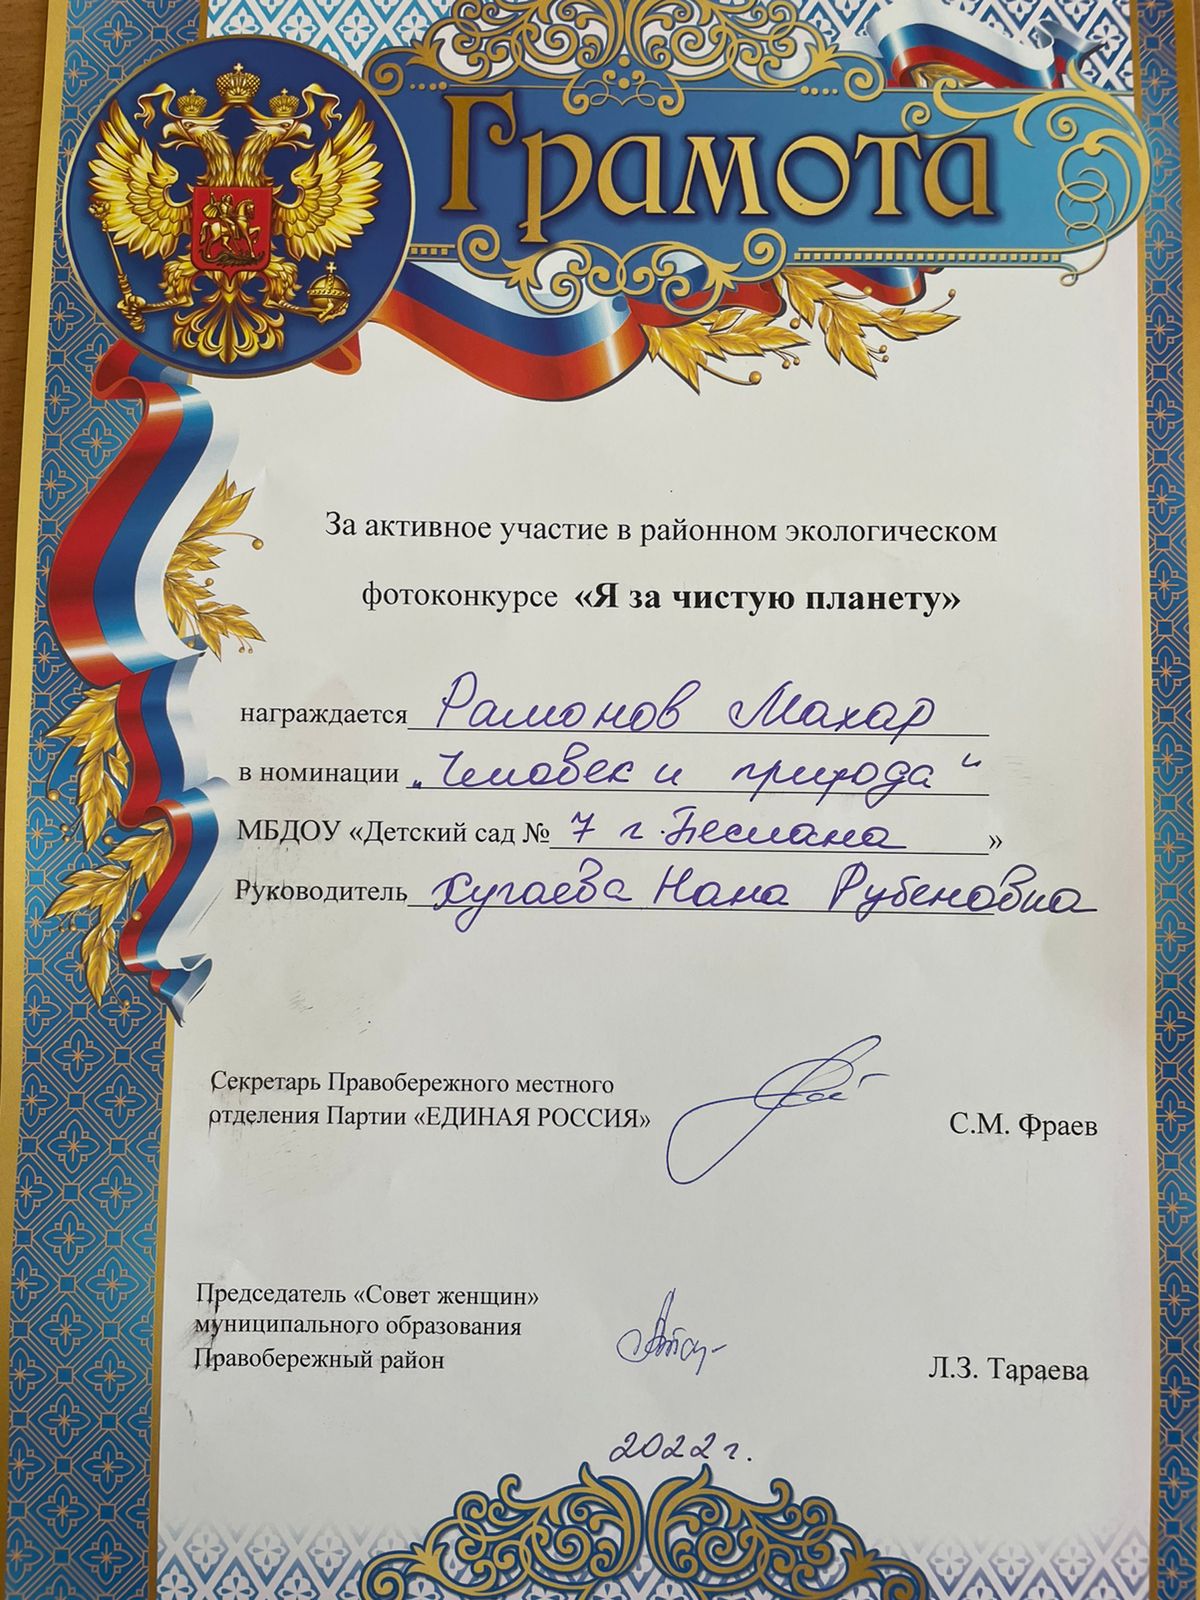 Грамота
За активное участие в районном экологическом
фотоконкурсе «Я за чистую планету»
награждается Рамонов Махар
в номинации „Человек и природа“
МБДОУ «Детский сад № 7 г. Беслана »
Руководитель Хугаева Нана Рубеновна
Секретарь Правобережного местного
отделения Партии «ЕДИНАЯ РОССИЯ»
С.М. Фраев
Председатель «Совет женщин»
муниципального образования
Правобережный район
Л.З. Тараева
2022 г.